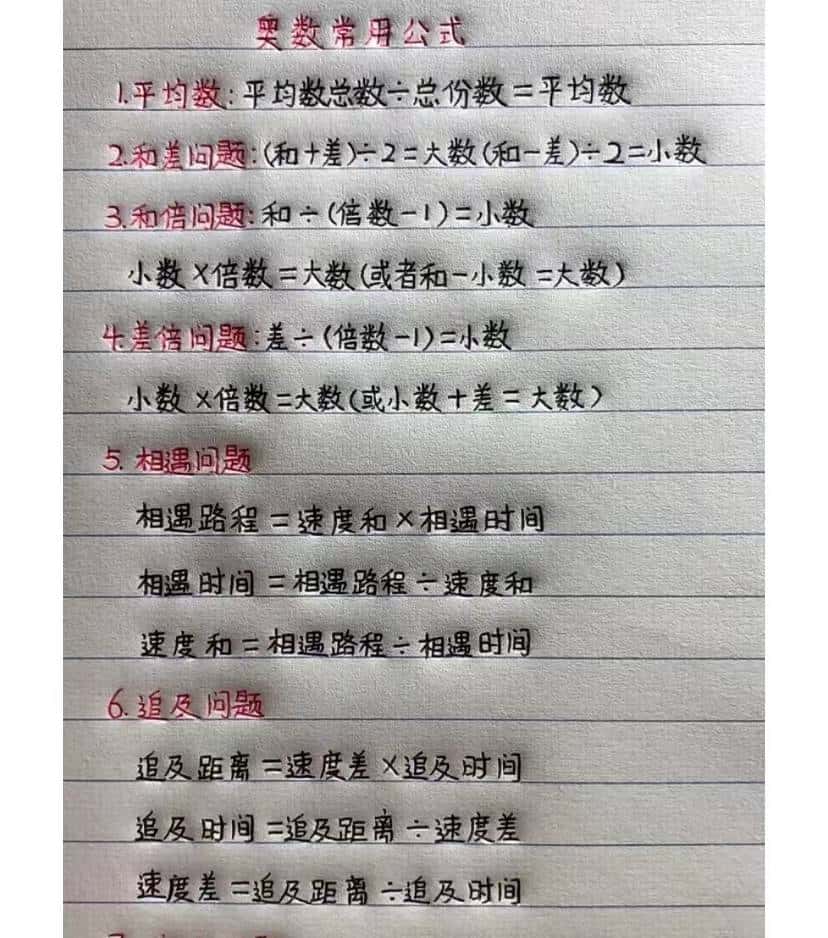 奥数常用公式
1.平均数:平均数总数÷总份数=平均数
2.和差问题:(和+差)÷2=大数(和-差)÷2=小数
3.和倍问题:和÷(倍数-1)=小数
小数×倍数=大数(或者和-小数=大数)
4.差倍问题:差÷(倍数-1)=小数
小数×倍数=大数(或小数+差=大数)
5.相遇问题
相遇路程=速度和×相遇时间
相遇时间=相遇路程÷速度和
速度和=相遇路程÷相遇时间
6.追及问题
追及距离=速度差×追及时间
追及时间=追及距离÷速度差
速度差=追及距离÷追及时间